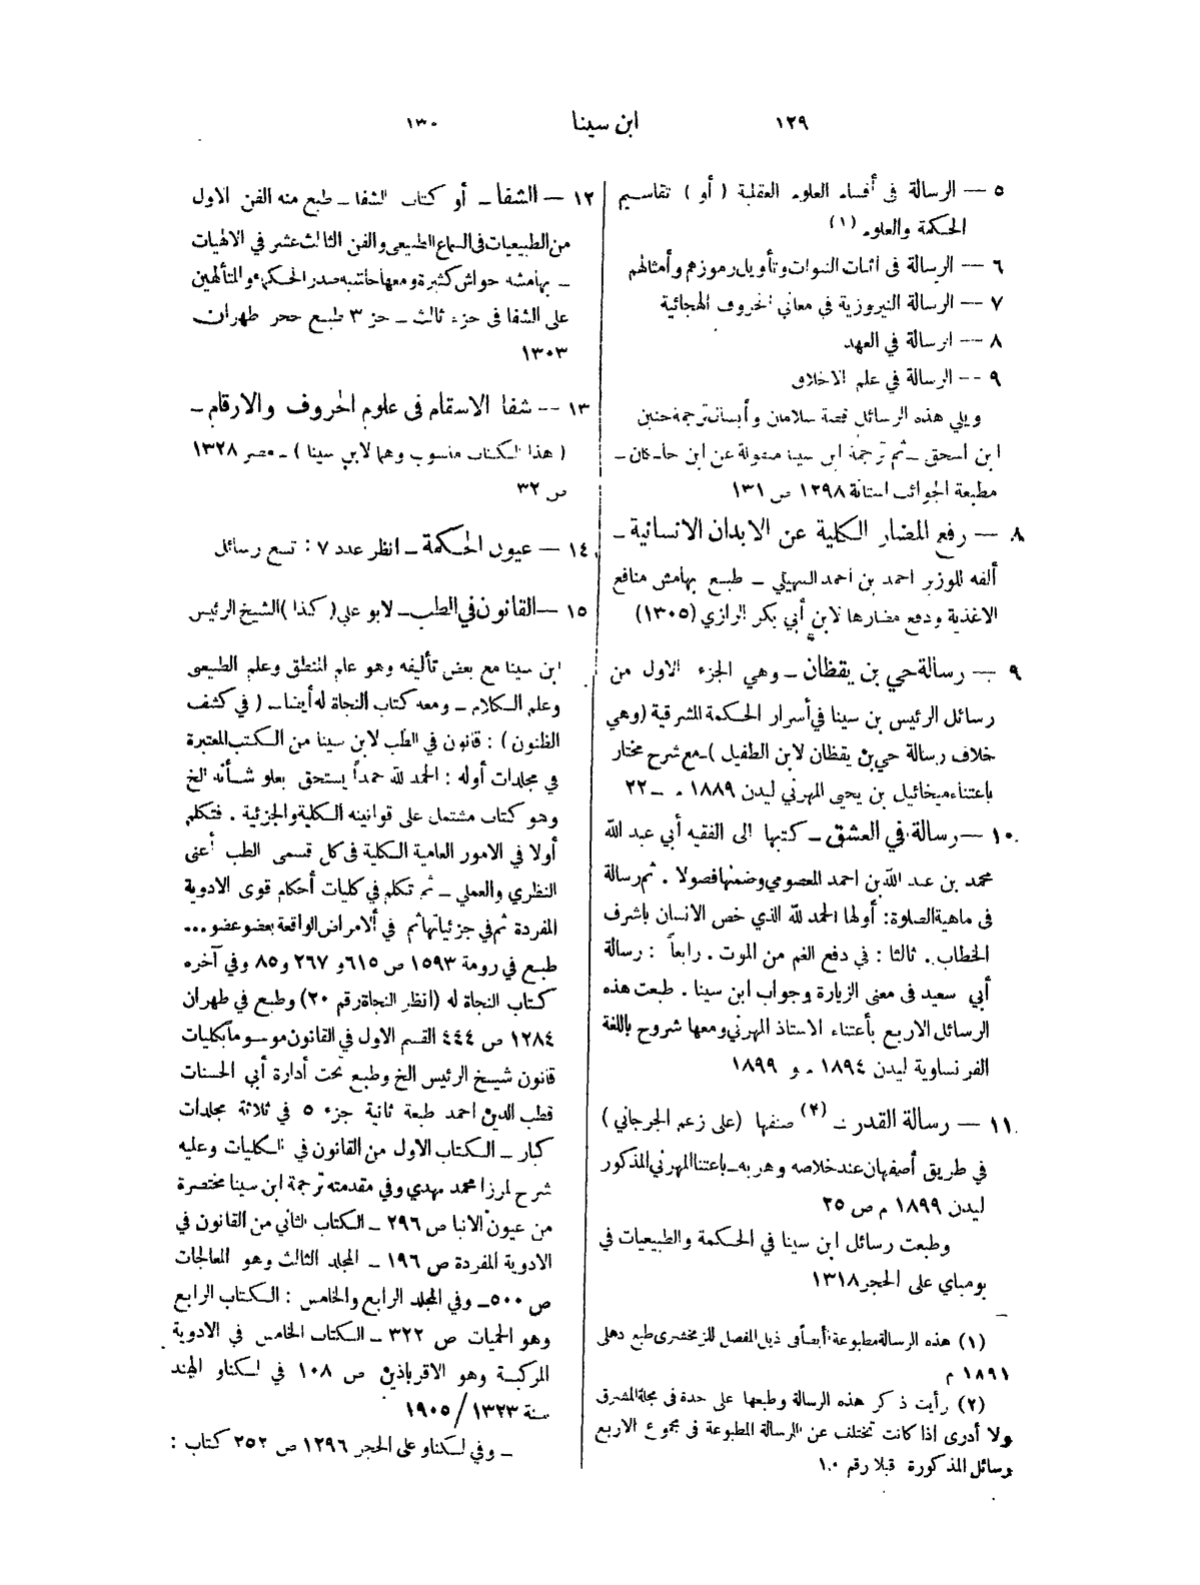 ١٢٩
ابن سينا
١٣٠
٥ — الرسالة في أقسام العلوم العقلية ( أو ) تقاسيم
الحكمة والعلوم (١)
٦ — الرسالة في اثبات النبوات وتأويل رموزهم وأمثالهم
٧ — الرسالة النيروزية في معاني الحروف الهجائية
٨ — الرسالة في العهد
٩ — الرسالة في علم الاخلاق
ويلي هذه الرسائل قصة سلامان وأبسال ترجمة حنين
ابن اسحق ـ ثم ترجمة ابن سينا منقولة عن ابن خلكان ـ
مطبعة الجوائب استانة ١٢٩٨ ص ١٣١
٨ — رفع المضار الكلية عن الابدان الانسانية ـ
ألفه للوزير احمد بن احمد السهيلي ـ طبع بهامش منافع
الاغذية ودفع مضارها لابن أبي بكر الرازي (١٣٠٥)
٩ — رسالة حي بن يقظان ـ وهي الجزء الاول من
رسائل الرئيس بن سينا في أسرار الحكمة المشرقية (وهي
خلاف رسالة حي بن يقظان لابن الطفيل )ـ مع شرح مختار
باعتناء ميخائيل بن يحيى المهرني ليدن ١٨٨٩ م ـ ٢٢
١٠ — رسالة في العشق ـ كتبها الى الفقيه أبي عبد الله
محمد بن عبد الله بن احمد المعصومي وضمنها فصولا . ثم رسالة
في ماهية الصلوة: أولها الحمد لله الذي خص الانسان باشرف
الخطاب . ثالثا : في دفع الغم من الموت . رابعاً : رسالة
أبي سعيد في معنى الزيارة وجواب ابن سينا . طبعت هذه
الرسائل الاربع بأعتناء الاستاذ المهرني ومعها شروح باللغة
الفرنساوية ليدن ١٨٩٤ م و ١٨٩٩
١١ — رسالة القدر ـ (٢) صنفها (على زعم الجرجاني )
في طريق أصفهان عند خلاصه وهربه ـ باعتنا المهرني المذكور
ليدن ١٨٩٩ م ص ٢٥
وطبعت رسائل ابن سينا في الحكمة والطبيعيات في
بومباي على الحجر ١٣١٨
(١) هذه الرسالة مطبوعة أيضاً في ذيل المفصل للزمخشري طبع دهلي
١٨٩١ م
(٢) رأيت ذكر هذه الرسالة وطبعها على حدة في مجلة المشرق
ولا أدرى اذا كانت تختلف عن الرسالة المطبوعة في مجموع الاربع
رسائل المذكورة قبلا رقم ١٠
١٢ — الشفا ـ أو كتاب الشفا ـ طبع منه الفن الاول
من الطبيعيات في السماع الطبيعي والفن الثالث عشر في الالهيات
ـ بهامشه حواش كثيرة ومعها حاشيه صدر الحكماء والمتألهين
على الشفا في جزء ثالث ـ جز ٣ طبع حجر طهران
١٣٠٣
١٣ — شفا الاسقام في علوم الحروف والارقام ـ
( هذا الكتاب منسوب وهما لابن سينا ) ـ مصر ١٣٢٨
ص ٣٢
١٤ — عيون الحكمة ـ انظر عدد ٧ : تسع رسائل
١٥ — القانون في الطب ـ لابو علي ( كذا ) الشيخ الرئيس
ابن سينا مع بعض تأليفه وهو علم المنطق وعلم الطبيعي
وعلم الكلام ـ ومعه كتاب النجاة له أيضا ـ ( في كشف
الظنون ) : قانون في الطب لابن سينا من الكتب المعتبرة
في مجلدات أوله : الحمد لله حمداً يستحق بعلو شأنه الخ
وهو كتاب مشتمل على قوانينه الكلية والجزئية . فتكلم
أولا في الامور العامية الكلية في كل قسمى الطب أعنى
النظري والعملي ـ ثم تكلم في كليات أحكام قوى الادوية
المفردة ثم في جزئياتها ثم في الامراض الواقعة بعضو عضو ...
طبع في رومة ١٥٩٣ ص ٦١٥ و ٢٦٧ و ٨٥ وفي آخره
كتاب النجاة له (انظر النجاة رقم ٢٠) وطبع في طهران
١٢٨٤ ص ٤٤٤ القسم الاول في القانون موسوماً بكليات
قانون شيخ الرئيس الخ وطبع تحت أدارة أبي الحسنات
قطب الدين احمد طبعة ثانية جزء ٥ في ثلاثة مجلدات
كبار ـ الكتاب الاول من القانون في الكليات وعليه
شرح لمرزا محمد مهدي وفي مقدمته ترجمة ابن سينا مختصرة
من عيون الانبا ص ٢٩٦ ـ الكتاب الثاني من القانون في
الادوية المفردة ص ١٩٦ ـ المجلد الثالث وهو المعالجات
ص ٥٠٠ ـ وفي المجلد الرابع والخامس : الكتاب الرابع
وهو الحميات ص ٣٢٢ ـ الكتاب الخامس في الادوية
المركبة وهو الاقرباذين ص ١٠٨ في لكناو الهند
سنة ١٣٢٣/ ١٩٠٥
ـ وفي لكناو على الحجر ١٢٩٦ ص ٢٥٢ كتاب :